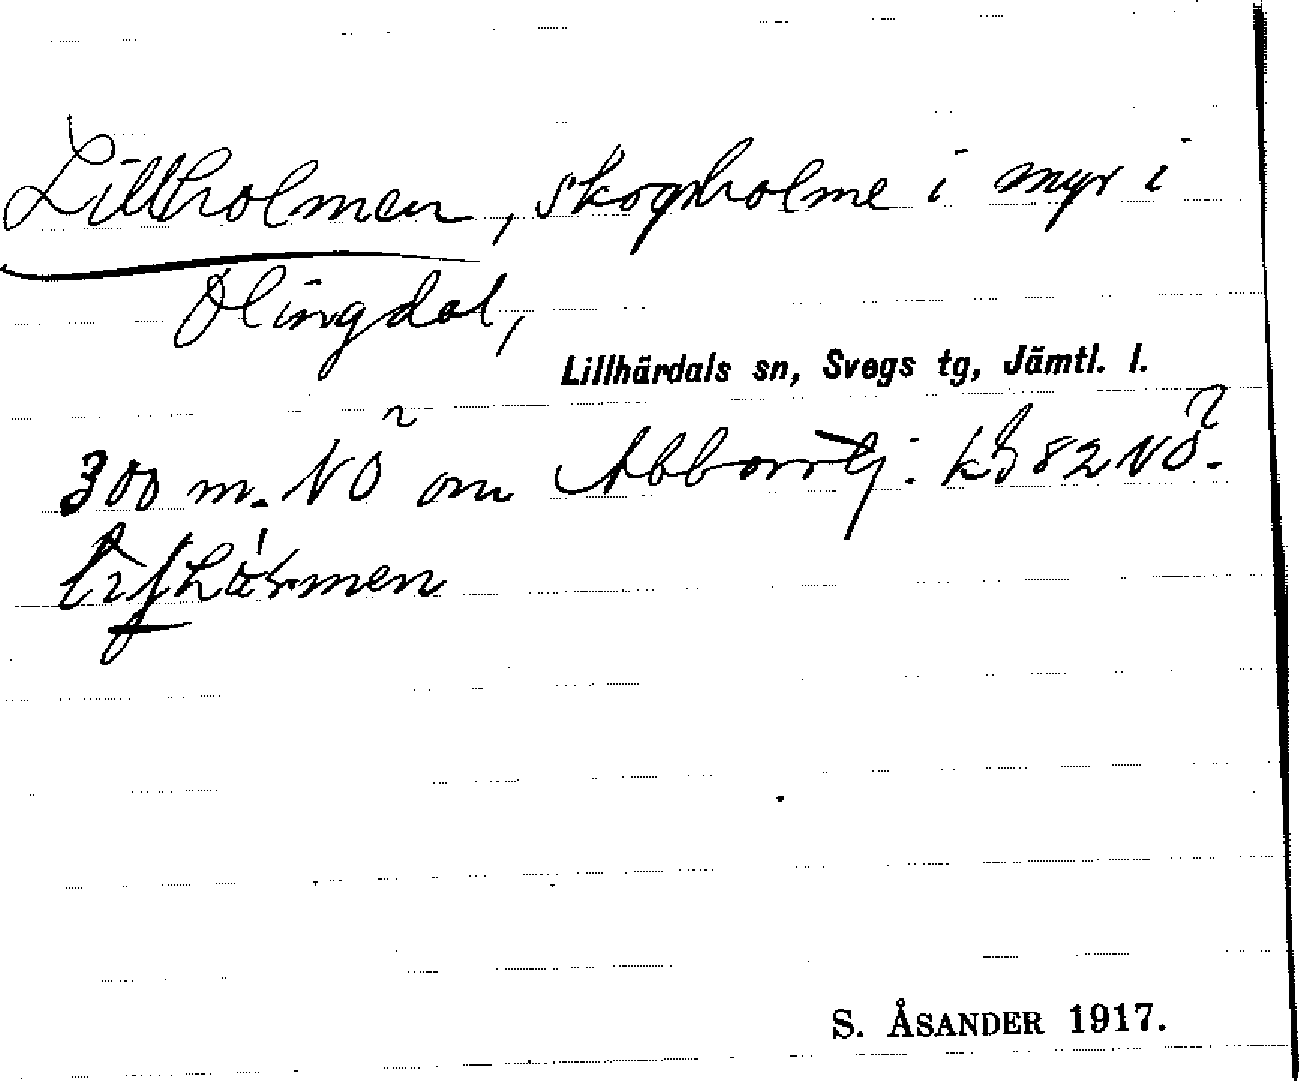 Lillholmen, skogsholme i myr i
Olingdal,
Lillhärdals sn, Svegs tg, Jämtl. l.
300 m. NÖ om Abborrtj: kb 82 NÖ.
S. ÅSANDER 1917.